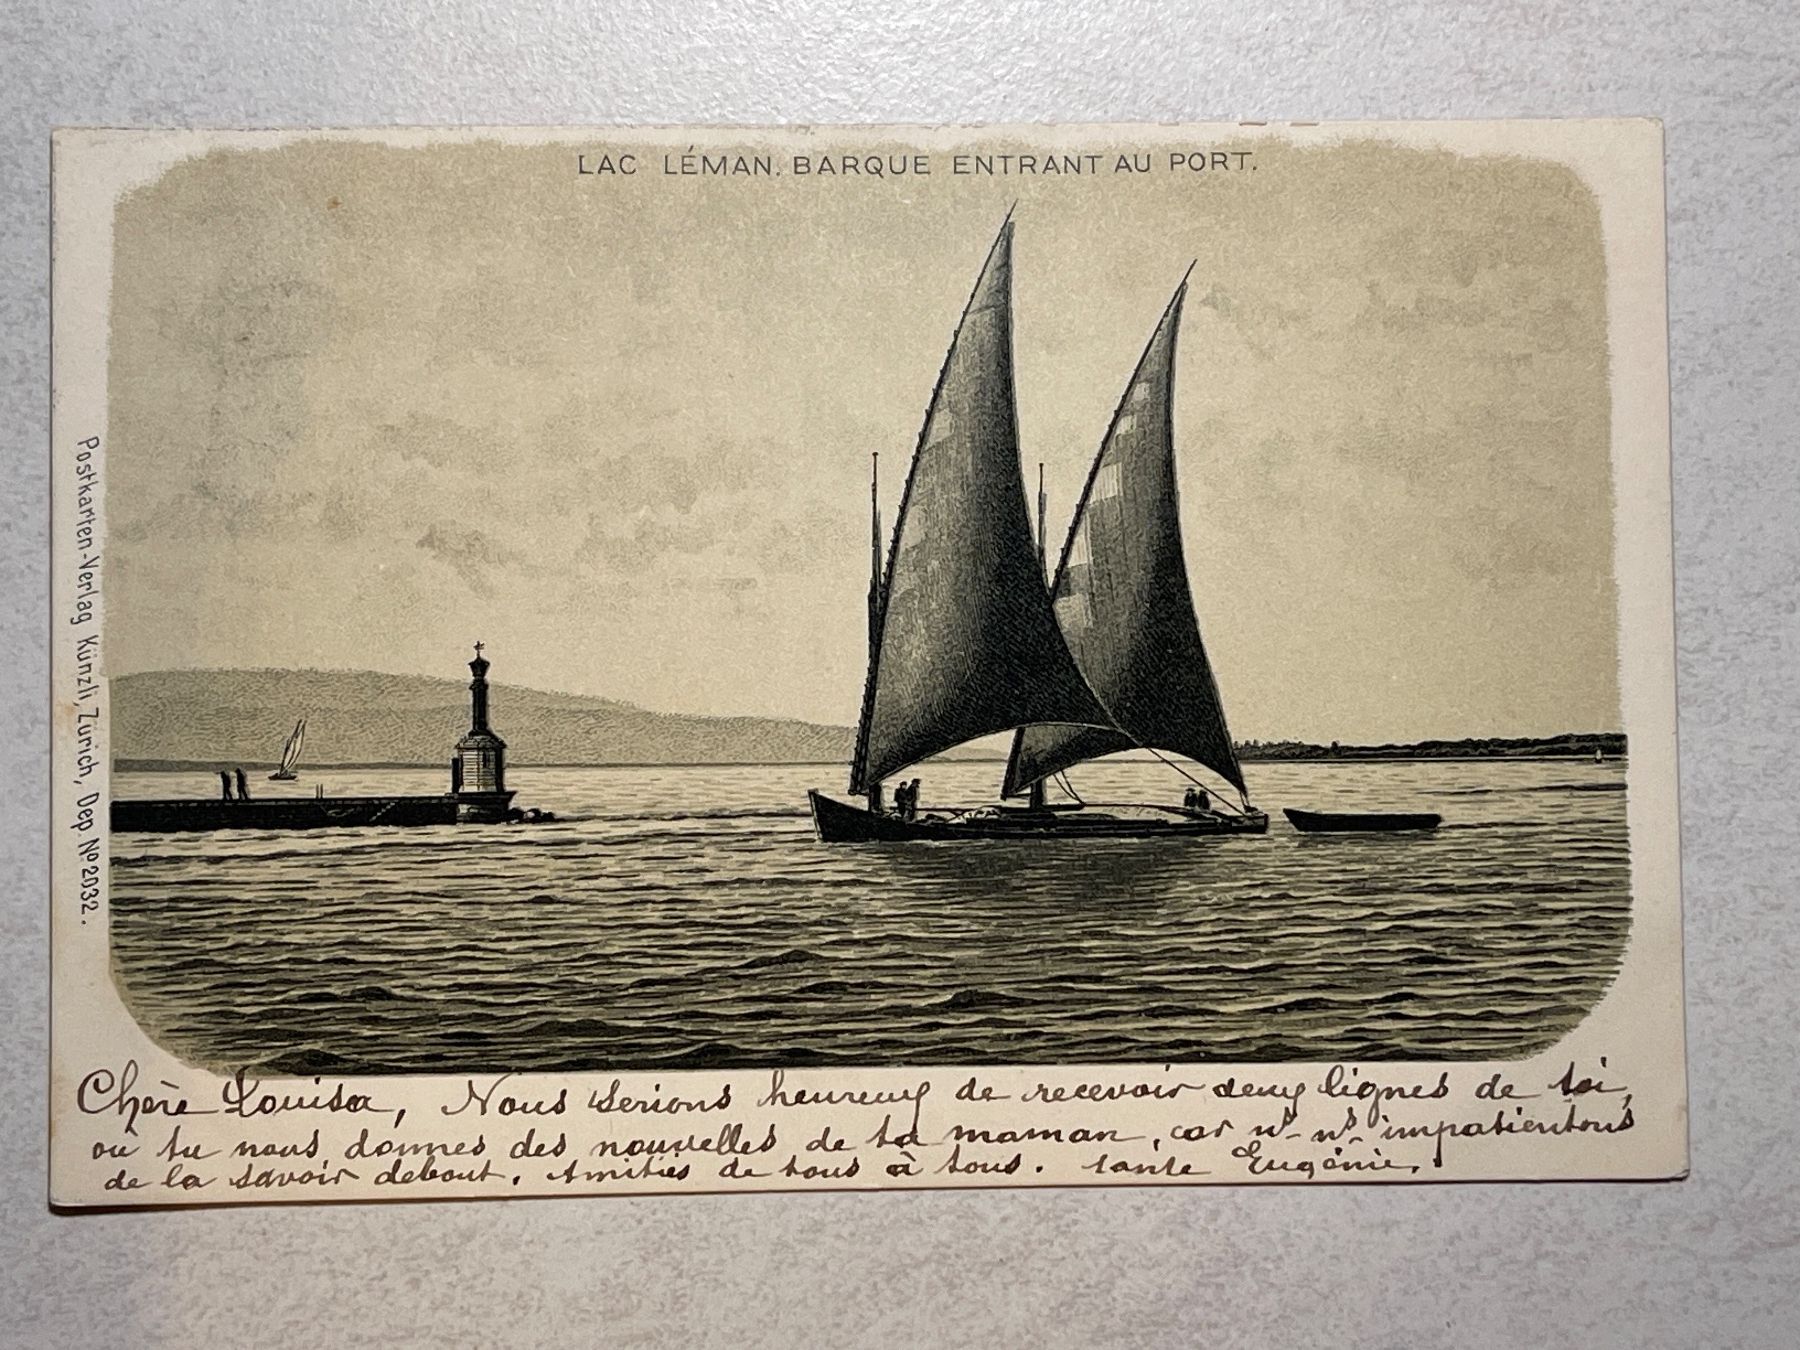 LAC LÉMAN. BARQUE ENTRANT AU PORT.
Postkarten-Verlag Künzli, Zürich, Dep. No 2032.
Chère Louisa, Nous serions heureux de recevoir deux lignes de toi,
où tu nous donnes des nouvelles de ta maman, car ns. ns. impatientons
de la savoir debout. Amitiés de tous à tous. tante Eugénie.